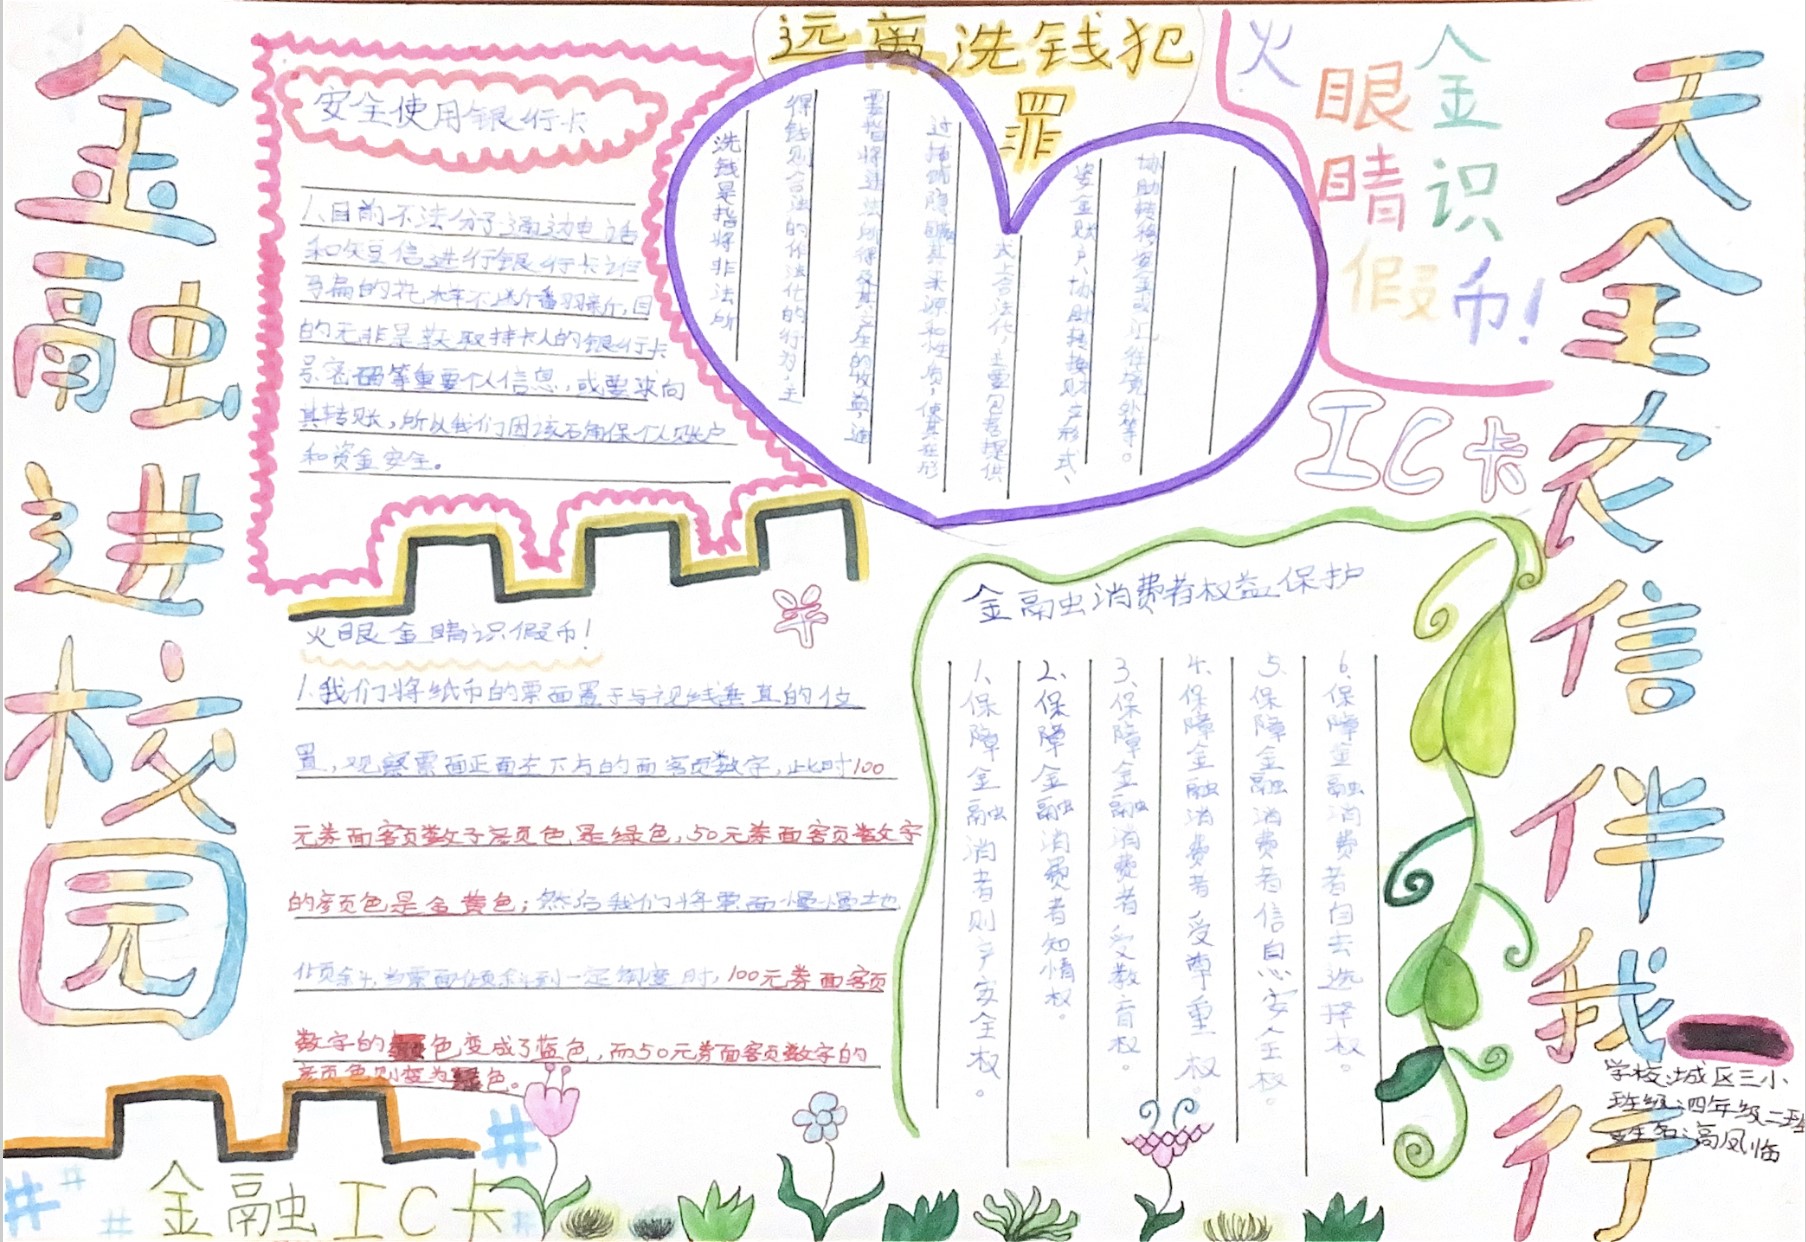 金融进校园
安全使用银行卡
1、目前不法分子通过电话
和短信进行银行卡诈
骗的花样不断翻新,目
的无非是获取持卡人的银行卡
号密码等重要个人信息,或要求向
其转账,所以我们因该确保个人账户
和资金安全。
远离洗钱犯
罪
洗钱是指将非法所
得钱则合法的作法化的行为,主
要指将违法所得及其产生的收益,通
过掩饰隐瞒其来源和性质,使其在形
式上合法化,主要包括提供
资金账户、协助转换财产形式、
协助转移资金或汇往境外等。
火眼金睛识假币!
IC卡
天全农信伴我行
火眼金睛识假币!
1、我们将纸币的票面置于与视线垂直的位
置,观察票面正面左下方的面额数字,此时100
元券面额数字颜色是绿色,50元券面额数字
的颜色是金黄色;然后我们将票面慢慢地
倾斜,当票面倾斜到一定角度时,100元券面额
数字的色变成了蓝色,而50元券面额数字的
颜色则变为色。
金融消费者权益保护
1、保障金融消者则产安全权。
2、保障金融消费者知情权。
3、保障金融消费者受教育权。
4、保障金融消费者受尊重权。
5、保障金融消费者信息安全权。
6、保障金融消费者自主选择权。
学校:城区三小
班级:四年级二班
姓名:高凤临
金融IC卡